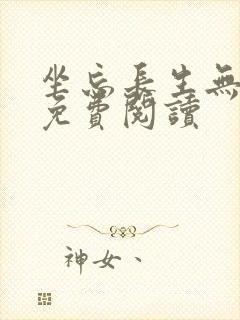 坐忘長生無
免費閱讀
神女、